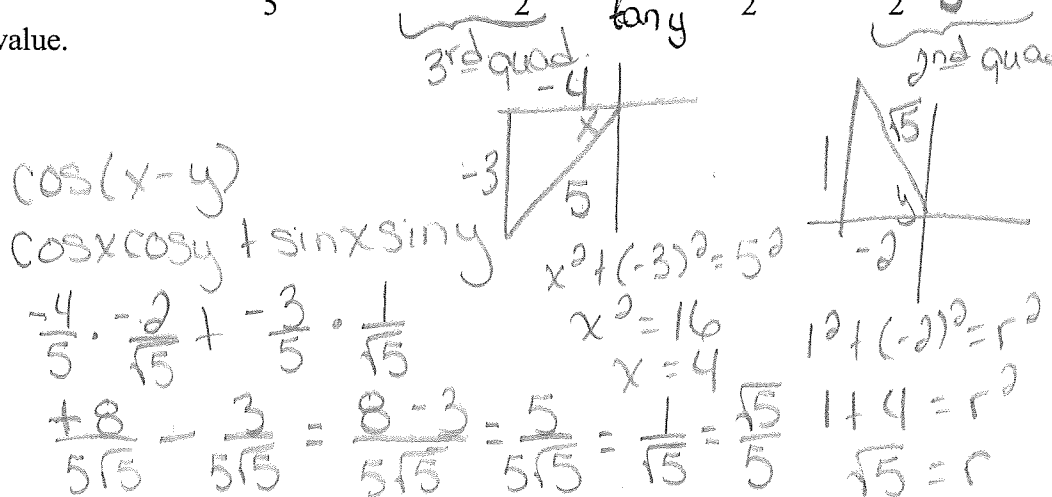 5 2 tan y 2 2
value.
3rd quad. 2nd qua
-4
x
-3
5
1
√5
y
-2
cos(x-y)
cosxcosy + sinxsiny
-4/5 · -2/√5 + -3/5 · 1/√5
+8/5√5 - 3/5√5 = 8-3/5√5 = 5/5√5 = 1/√5 = √5/5
x² + (-3)² = 5²
x² = 16
x = 4
1² + (-2)² = r²
1 + 4 = r²
√5 = r